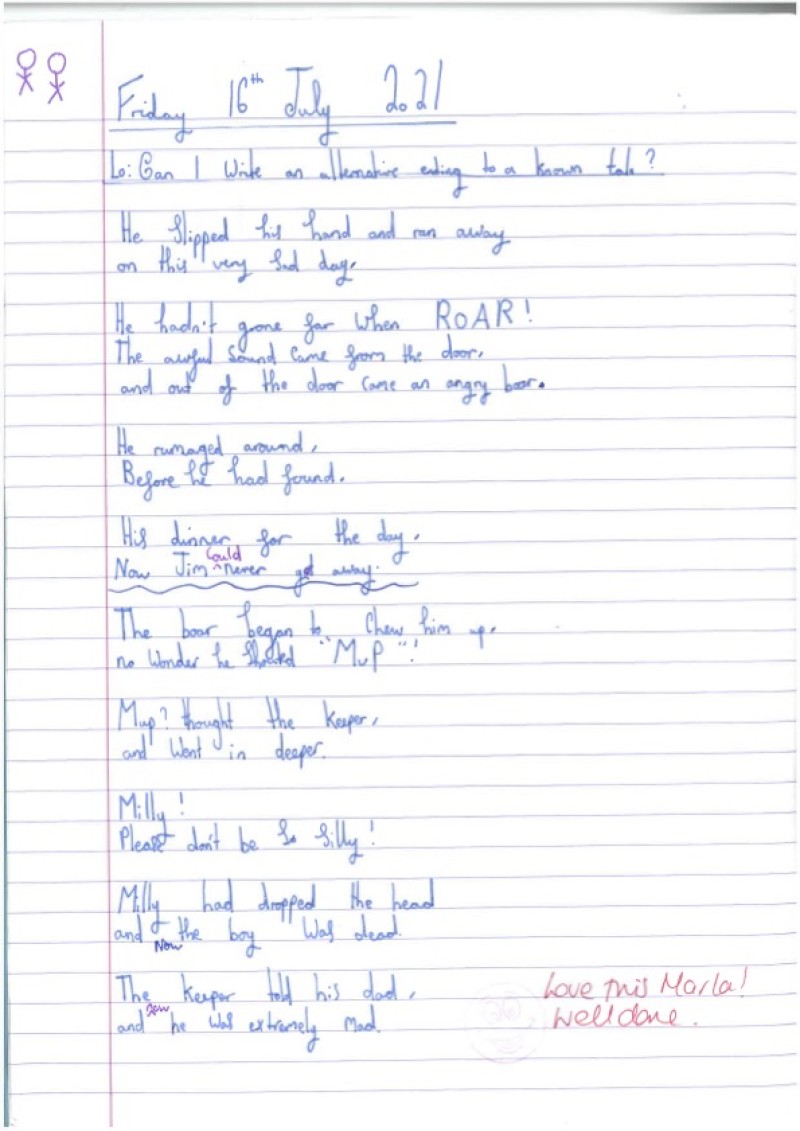 Friday 16th July 2021
Lo: Can I write an alternative ending to a known tale?
He slipped his hand and ran away
on this very sad day.
He hadn't gone far when ROAR!
The awful sound came from the door,
and out of the door came an angry boar.
He rumaged around,
Before he had found.
His dinner for the day.
Now Jim could never get away.
The boar began to chew him up,
no wonder he shouted "MuP"!
Mup? thought the keeper,
and went in deeper.
Milly!
Please don't be so silly!
Milly had dropped the head
and now the boy was dead.
The keeper told his dad,
and he was extremely mad.
Love this Marla!
Well done.